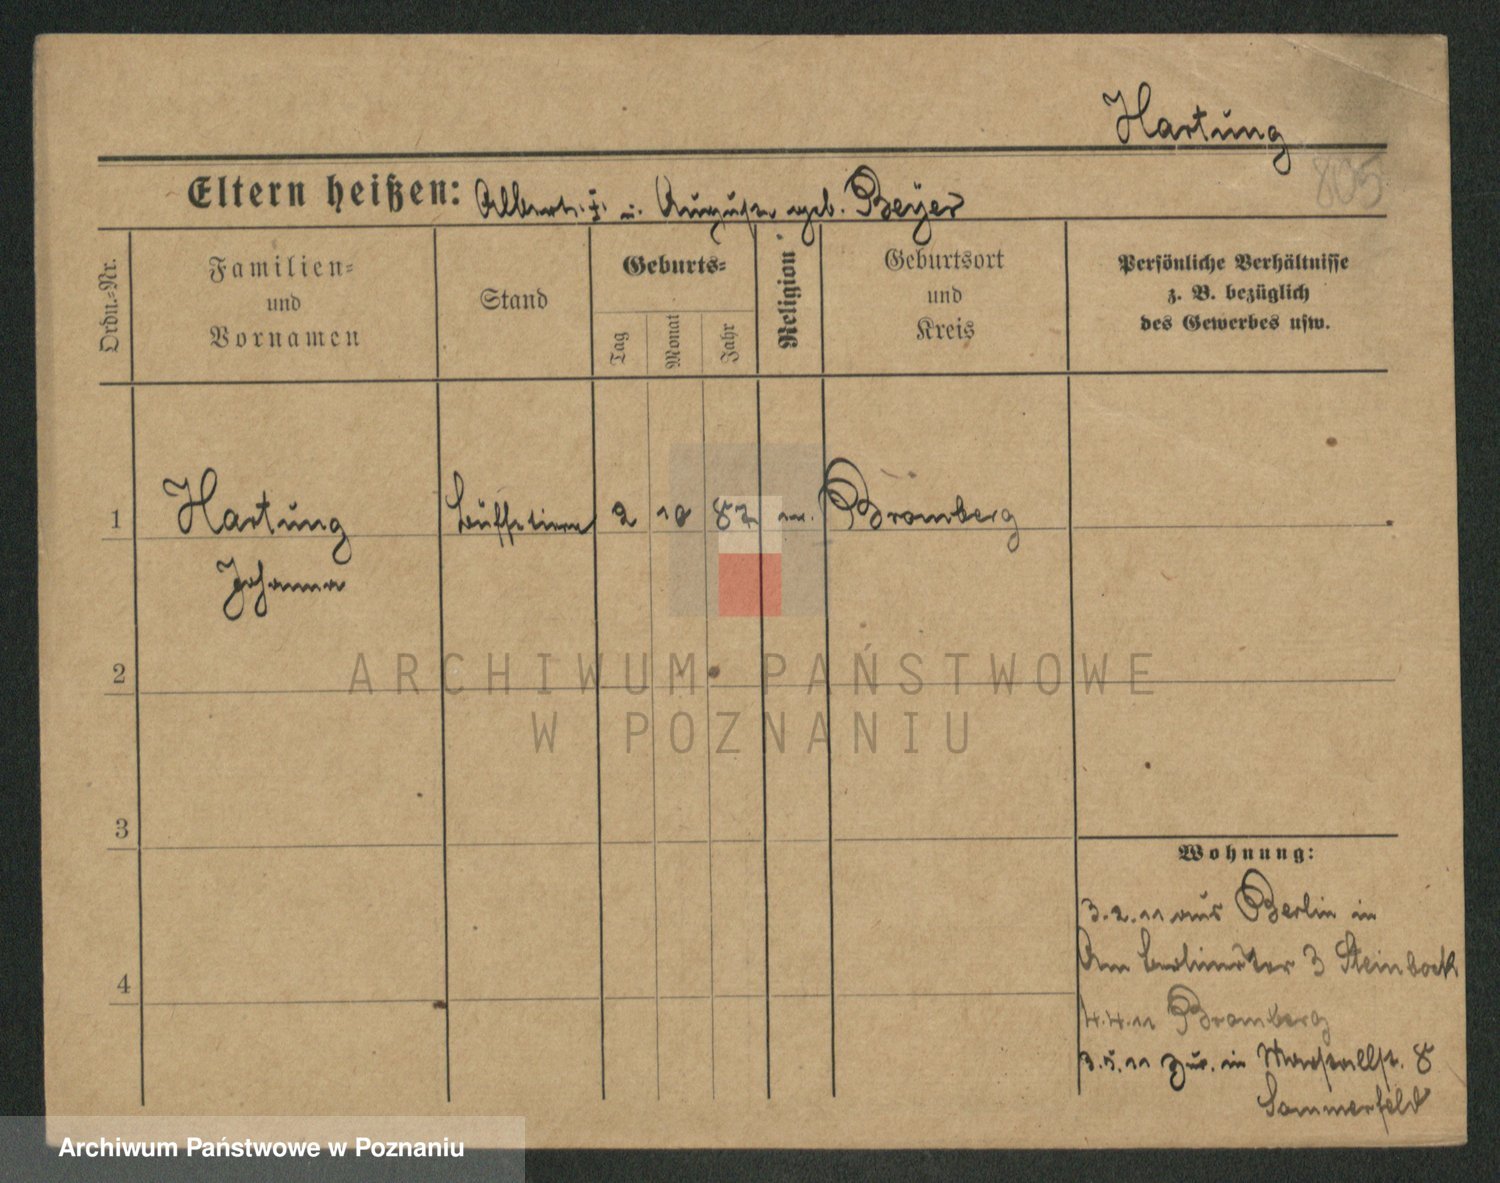 Hartung
805
Eltern heißen: Albert u. Auguste geb. Beyer
Ordn.-Nr.
Familien-
und
Vornamen
Stand
Geburts-
Tag
Monat
Jahr
Religion
Geburtsort
und
Kreis
Persönliche Verhältnisse
z. B. bezüglich
des Gewerbes usw.
1 Hartung Büffetiere 2 10 82 Bromberg
Johanna
2
ARCHIWUM PAŃSTWOWE
W POZNANIU
3
Wohnung:
3.2.11 aus Berlin in
Am Berlinertor 3 Steinbock
4
4.4.11 Bromberg
3.5.11 zur. in Marstallst. 8
Sommerfeld
Archiwum Państwowe w Poznaniu